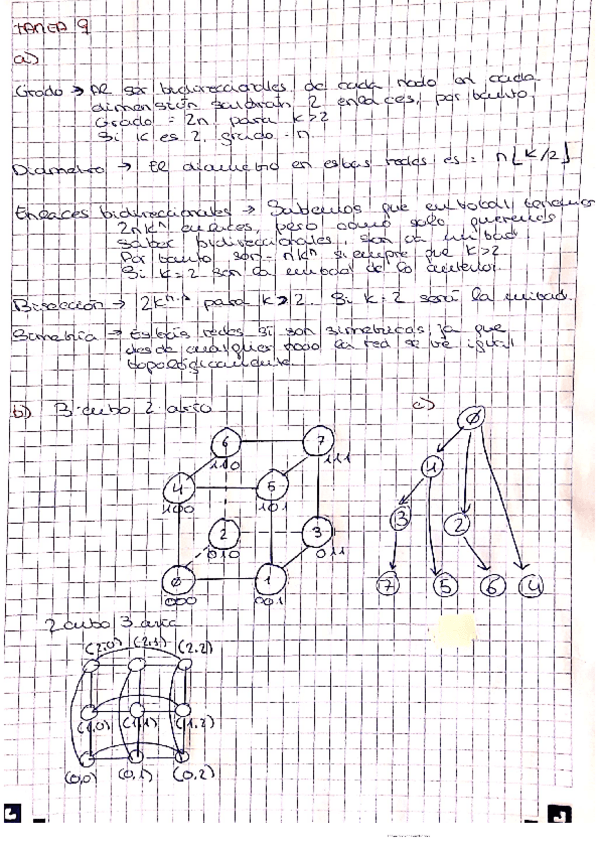 TAREA 9
a)
Grado → Al ser bidireccionales de cada nodo en cada
dimensión saldrán 2 enlaces, por tanto,
Grado = 2n para k>2
Si k es 2, grado = n
Diámetro → El diámetro en estas redes es = n⌊k/2⌋
Enlaces bidireccionales → Sabemos que en total tenemos
2nkⁿ enlaces, pero como solo queremos
saber bidireccionales, son la mitad
Por tanto son = nkⁿ siempre que k>2.
Si k=2 son la mitad de lo anterior.
Bisección → 2kⁿ⁻¹ para k>2. Si k=2 será la mitad.
Simetría → Estas redes si son simétricas, ya que
desde cualquier nodo la red se ve igual
topológicamente.
b) 3-cubo 2 ario
c)
6 7
110 111
4 5
100 101
2 3
010 011
0 1
000 001
0
1
3 2
7 5 6 4
2 cubo 3 ario
(2,0) (2,1) (2,2)
(1,0) (1,1) (1,2)
(0,0) (0,1) (0,2)